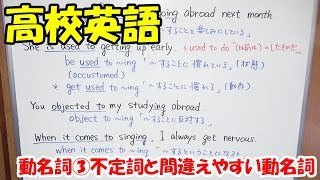 高校英語
going abroad next month.
ことを楽しみにしている」
She is used to getting up early. ×used to do「(以前は)〜したものだ」
be used to 〜ing「〜することに慣れている」(状態)
(accustomed)
* get used to 〜ing「〜することに慣れる」(動作)
You objected to my studying abroad.
object to 〜ing「〜することに反対する」
When it comes to singing, I always get nervous.
when it comes to 〜ing「〜するということになると」
動名詞③不定詞と間違えやすい動名詞